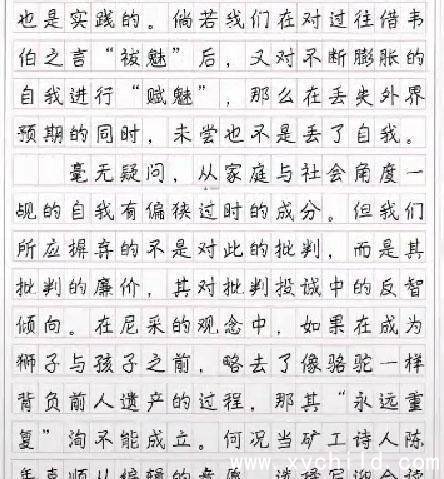 也是实践的。倘若我们在对过往借韦
伯之言“祓魅”后,又对不断膨胀的
自我进行“赋魅”,那么在丢失外界
预期的同时,未尝也不是丢了自我。
毫无疑问,从家庭与社会角度一
觇的自我有偏狭过时的成分。但我们
所应摒弃的不是对此的批判,而是其
批判的廉价,其对批判投诚中的反智
倾向。在尼采的观念中,如果在成为
狮子与孩子之前,略去了像骆驼一样
背负前人遗产的过程,那其“永远重
复”洵不能成立。何况当矿工诗人陈
年喜顺从编辑的意愿,选择写迎合读
www.xychild.com